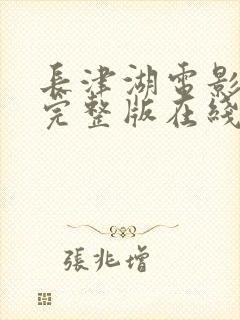 長津湖電影
完整版在綫
張兆增